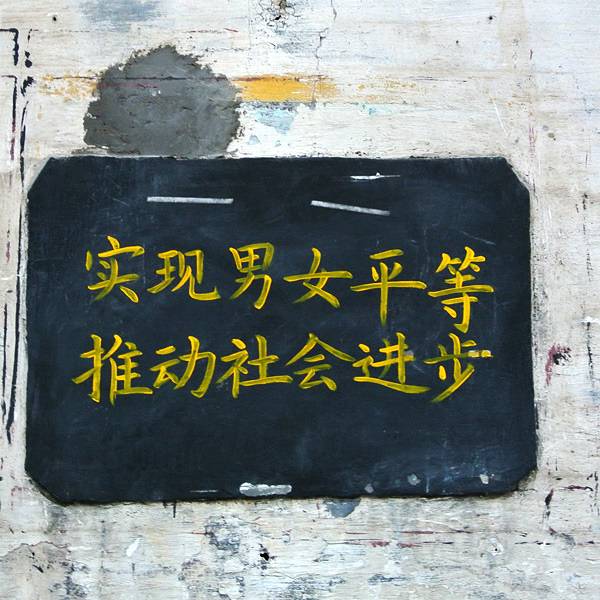 实现男女平等
推动社会进步